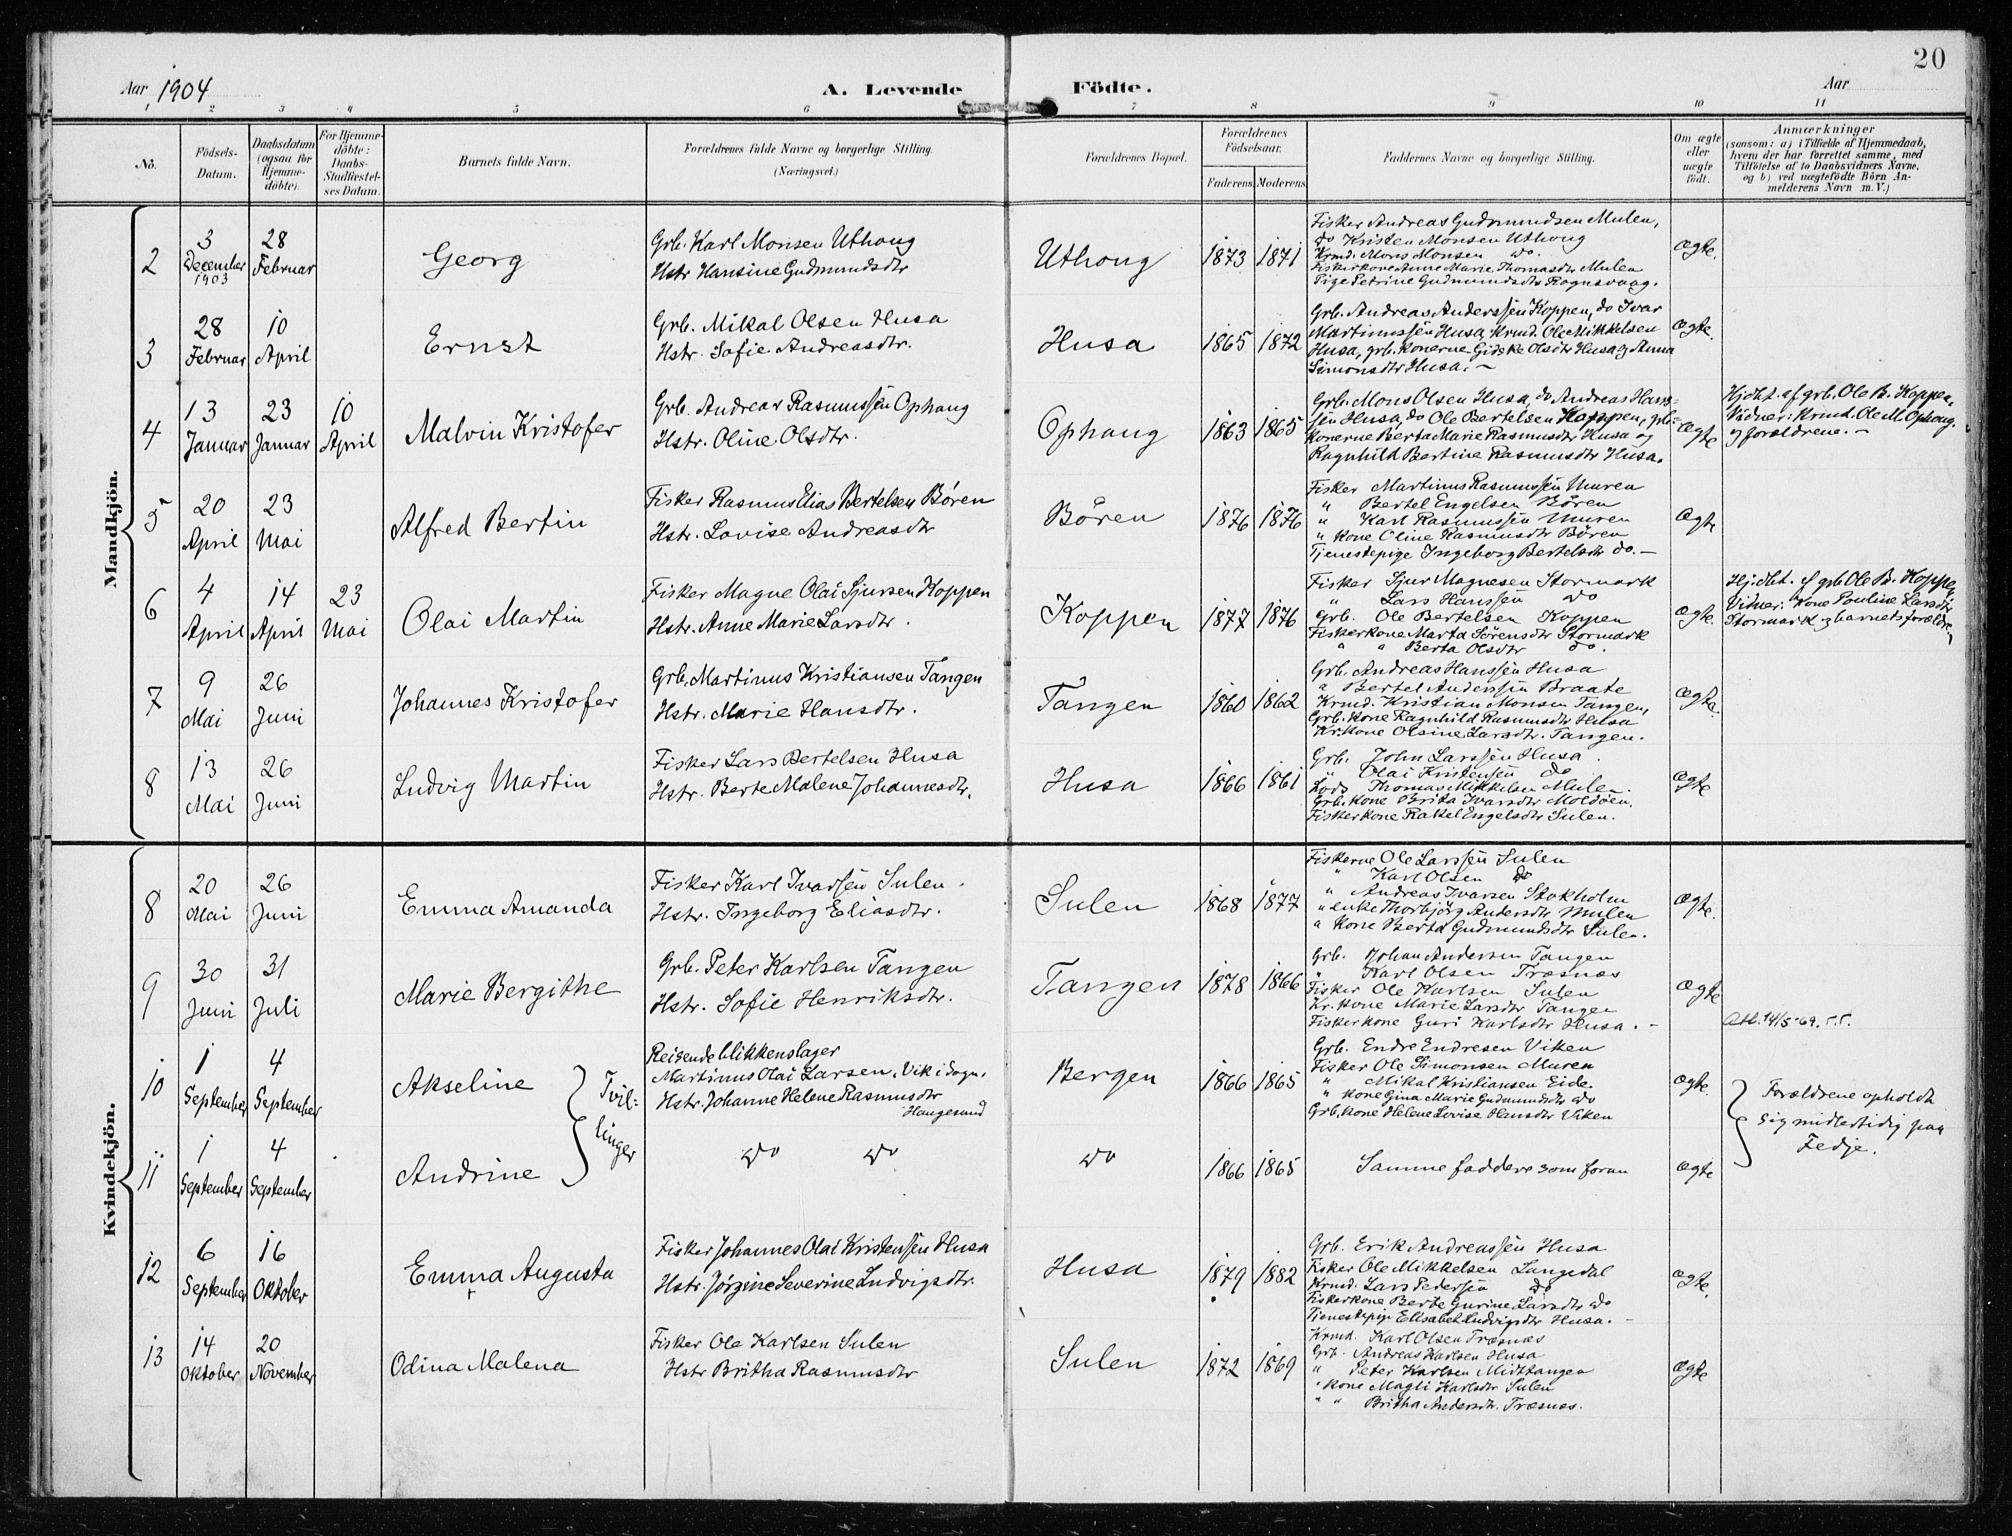 20
Aar 1904
A. Levende
Födte.
Aar
1 2 3 4 5 6 7 8 9 10 11
Nô.
Födsels-
Datum.
Daabsdatum
(ogsaa for
Hjemme-
döbte).
For Hjemme-
döbte:
Daabs-
Stadfæstel-
ses Datum.
Barnets fulde Navn.
Forældrenes fulde Navne og borgerlige Stilling.
(Næringsvei.)
Forældrenes Bopæl.
Forældrenes
Födselsaar.
Faderens. Moderens.
Faddernes Navne og borgerlige Stilling.
Om ægte
eller
uægte
födt.
Anmærkninger
(saasom: a) i Tilfælde af Hjemmedaab,
hvem der har forrettet samme, med
Tilföielse af to Daabsvidners Navne,
og b) ved uægtefödte Börn An-
melderens Navn m. V.)
Mandkjön.
2
3
December
1903
28
Februar
Georg
Grb. Karl Monsen Uthoug
Hstr Hansine Gudmundsdtr
Uthoug
1873 1871
Fisker Andreas Gudmundsen Mulen,
do Kristen Monsen Uthoug
Krmd. Mons Monsen do.
Fiskerkone Anne Marie Thomasdtr Mulen
Pige Petrine Gudmundsdtr Rognsvaag.
Ægte.
3
28
Februar
10
April
Ernst
Grb. Mikal Olsen Husa
Hstr. Sofie Andreasdtr.
Husa
1865 1872
Grb. Andreas Anderssen Koppen, do Ivar
Martinussen Husa, Krmd. Ole Mikkelsen
Husa, grb. konerne Gidske Olsdtr Husa og Anna
Simonsdtr Husa. –
Ægte.
4
13
Januar
23
Januar
10
April
Malvin Kristofer
Grb. Andreas Rasmussen Ophaug
Hstr. Oline Olsdtr.
Ophaug
1863 1865
Grb. Mons Olsen Husa, do Andreas Hans-
sen Husa, do Ole Bertelsen Koppen, grb.
konerne Berta Marie Rasmusdtr Husa og
Ragnhild Bertine Rasmusdtr Husa.
Ægte
Hjdbt. af grb. Ole B. Koppen,
Vidner: Krmd. Ole M. Ophaug.
og forældrene. –
5
20
April
23
Mai
Alfred Bertin
Fisker Rasmus Elias Bertelsen Børen
Hstr. Lovise Andreasdtr
Bören
1876 1876
Fisker Martinus Rasmussen Muren
" Bertel Engelsen Bören
" Karl Rasmussen Muren
" kone Oline Rasmusdtr Bören
Tjenestepige Ingeborg Bertelsdtr do. –
Ægte
6
4
April
14
April
23
Mai
Olai Martin
Fisker Magne Olai Sjursen Koppen
Hstr. Anne Marie Larsdtr.
Koppen
1877 1876
Fisker Sjur Magnesen Stormark
" Lars Hanssen do
Grb. Ole Bertelsen Koppen
Fiskerkone Marta Sörensdtr Stormark
" " Berta Olsdtr do.
Ægte.
Hj.dbt. af grb Ole B. Koppen,
Vidner: Kone Pouline Larsdtr
Stormark og barnets forældre
7
9
Mai
26
Juni
Johannes Kristofer
Grb. Martinus Kristiansen Tangen
Hstr. Marie Hansdtr.
Tangen
1860 1862
Grb. Andreas Hanssen Husa
" Bertel Anderssen Braate
Krmd. Kristian Monsen Tangen,
Grb. kone Ragnhild Rasmusdtr Husa
Kr. kone Olsine Larsdtr. Tangen.
Ægte.
8
13
Mai
26
Juni
Ludvig Martin
Fisker Lars Bertelsen Husa
Hstr. Berte Malene Johannesdtr.
Husa
1866 1861
Grb. John Larssen Husa.
" Olai Kristensen do
Lods Thomas Mikkelsen Mulen.
Grb. kone Brita Ivarsdtr Moldöen.
Fiskerkone Rakel Engelsdtr Sulen.
Ægte
Kvindekjön.
8
20
Mai
26
Juni
Emma Amanda
Fisker Karl Ivarsen Sulen.
Hstr. Ingeborg Eliasdtr.
Sulen
1868 1877
Fiskerne Ole Larssen Sulen
" Karl Olsen do
" Andreas Ivarsen Stokholm
" enke Thorbjörg Andersdtr Mulen
" Kone Berta Gudmundsdtr Sulen.
Ægte.
9
30
Juni
31
Juli
Marie Bergithe
Grb. Peter Karlsen Tangen
Hstr. Sofie Henriksdtr.
Tangen
1878 1866
Grb. Johan Andersen Tangen
" Karl Olsen Træsnæs
Fisker Ole Karlsen Sulen
Kr. kone Marie Larsdtr Tangen
Fiskerkone Guri Karlsdtr Husa. –
Ægte
Att. 14/5-69.
10
1
September
4
September
Akseline
Tvil-
linger
Reisende blikkenslager
Martinus Olai Larsen, Vik i Sogn.
Hstr. Johanne Helene Rasmusdtr
Haugesund
Bergen
1866 1865
Grb. Endre Endresen Viken
Fisker Ole Simonsen Muren
" Mikal Kristiansen Eide.
" kone Gina Marie Gudmundsdtr do
Grb. kone Helene Lovise Hansdtr Viken
Ægte.
Forældrene opholdt
sig midlertidig paa
Fedje.
11
1
September
4
September
Andrine
do do
do
1866 1865
Samme faddere som foran
Ægte
12
6
September
16
Oktober
Emma Augusta
Fisker Johannes Olai Kristensen Husa
Hstr. Jörgine Severine Ludvigsdtr.
Husa
1879 1882
Grb. Erik Andreassen Husa
Fisker Ole Mikkelsen Langedal
Krmd. Lars Pedersen do
Fiskerkone Berte Gurine Larsdtr do
Tjenestepige Elisabet Ludvigsdtr Husa. –
Ægte.
13
14
Oktober
20
November
Odina Malena
Fisker Ole Karlsen Sulen
Hstr Britha Rasmusdtr
Sulen
1872 1869
Krmd. Karl Olsen Træsnæs
Grb. Andreas Karlsen Husa
" Peter Karlsen Midttangen
" kone Magli Karlsdtr Sulen
" " Britha Andersdtr. Træsnæs.
Ægte